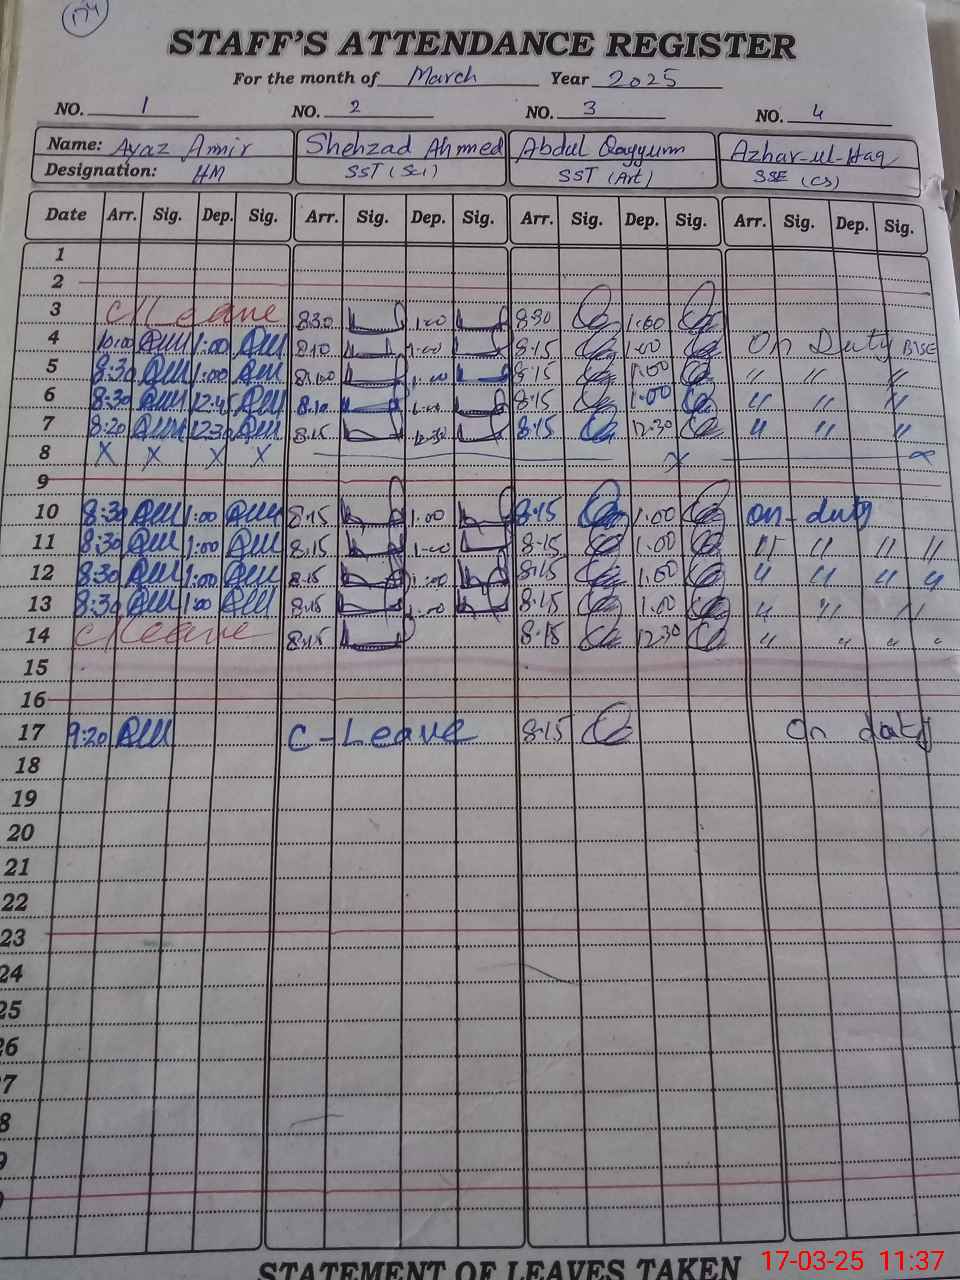 174
STAFF'S ATTENDANCE REGISTER
For the month of March Year 2025
NO. 1 NO. 2 NO. 3 NO. 4
Name: Ayaz Amir Shehzad Ahmed Abdul Qayyum Azhar-ul-Haq
Designation: HM SST (Sci) SST (Art) SSE (CS)
Date Arr. Sig. Dep. Sig. Arr. Sig. Dep. Sig. Arr. Sig. Dep. Sig. Arr. Sig. Dep. Sig.
1
2
3 C/Leave 8:30 1:00 8:30 1:00
4 10:00 1:00 8:10 1:00 8:15 1:00 On Duty BISE
5 8:30 1:00 8:00 1:00 8:15 1:00 " " "
6 8:30 12:45 8:10 1:00 8:15 1:00 " " "
7 8:20 12:30 8:15 12:30 8:15 12:30 " " "
8 X X X X X
9
10 8:30 1:00 8:15 1:00 8:15 1:00 on-duty
11 8:30 1:00 8:15 1:00 8:15 1:00 " " " "
12 8:30 1:00 8:15 1:00 8:15 1:00 " " " "
13 8:30 1:00 8:15 1:00 8:15 1:00 " " "
14 C/Leave 8:15 8:15 12:30 " " " "
15
16
17 9:20 C-Leave 8:15 On duty
18
19
20
21
22
23
24
25
26
7
8
9
STATEMENT OF LEAVES TAKEN
17-03-25 11:37